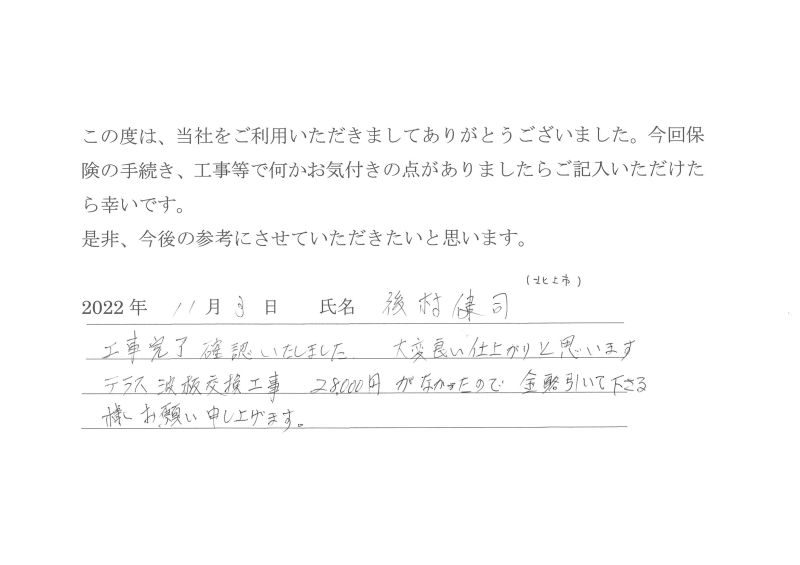 この度は、当社をご利用いただきましてありがとうございました。今回保
険の手続き、工事等で何かお気付きの点がありましたらご記入いただけた
ら幸いです。
是非、今後の参考にさせていただきたいと思います。
(北上市)
2022年 11月 3日 氏名 後村健司
工事完了確認いたしました 大変良い仕上がりと思います
テラス波板交換工事 28,000円がなかったので 金額引いて下さる
様にお願い申し上げます。